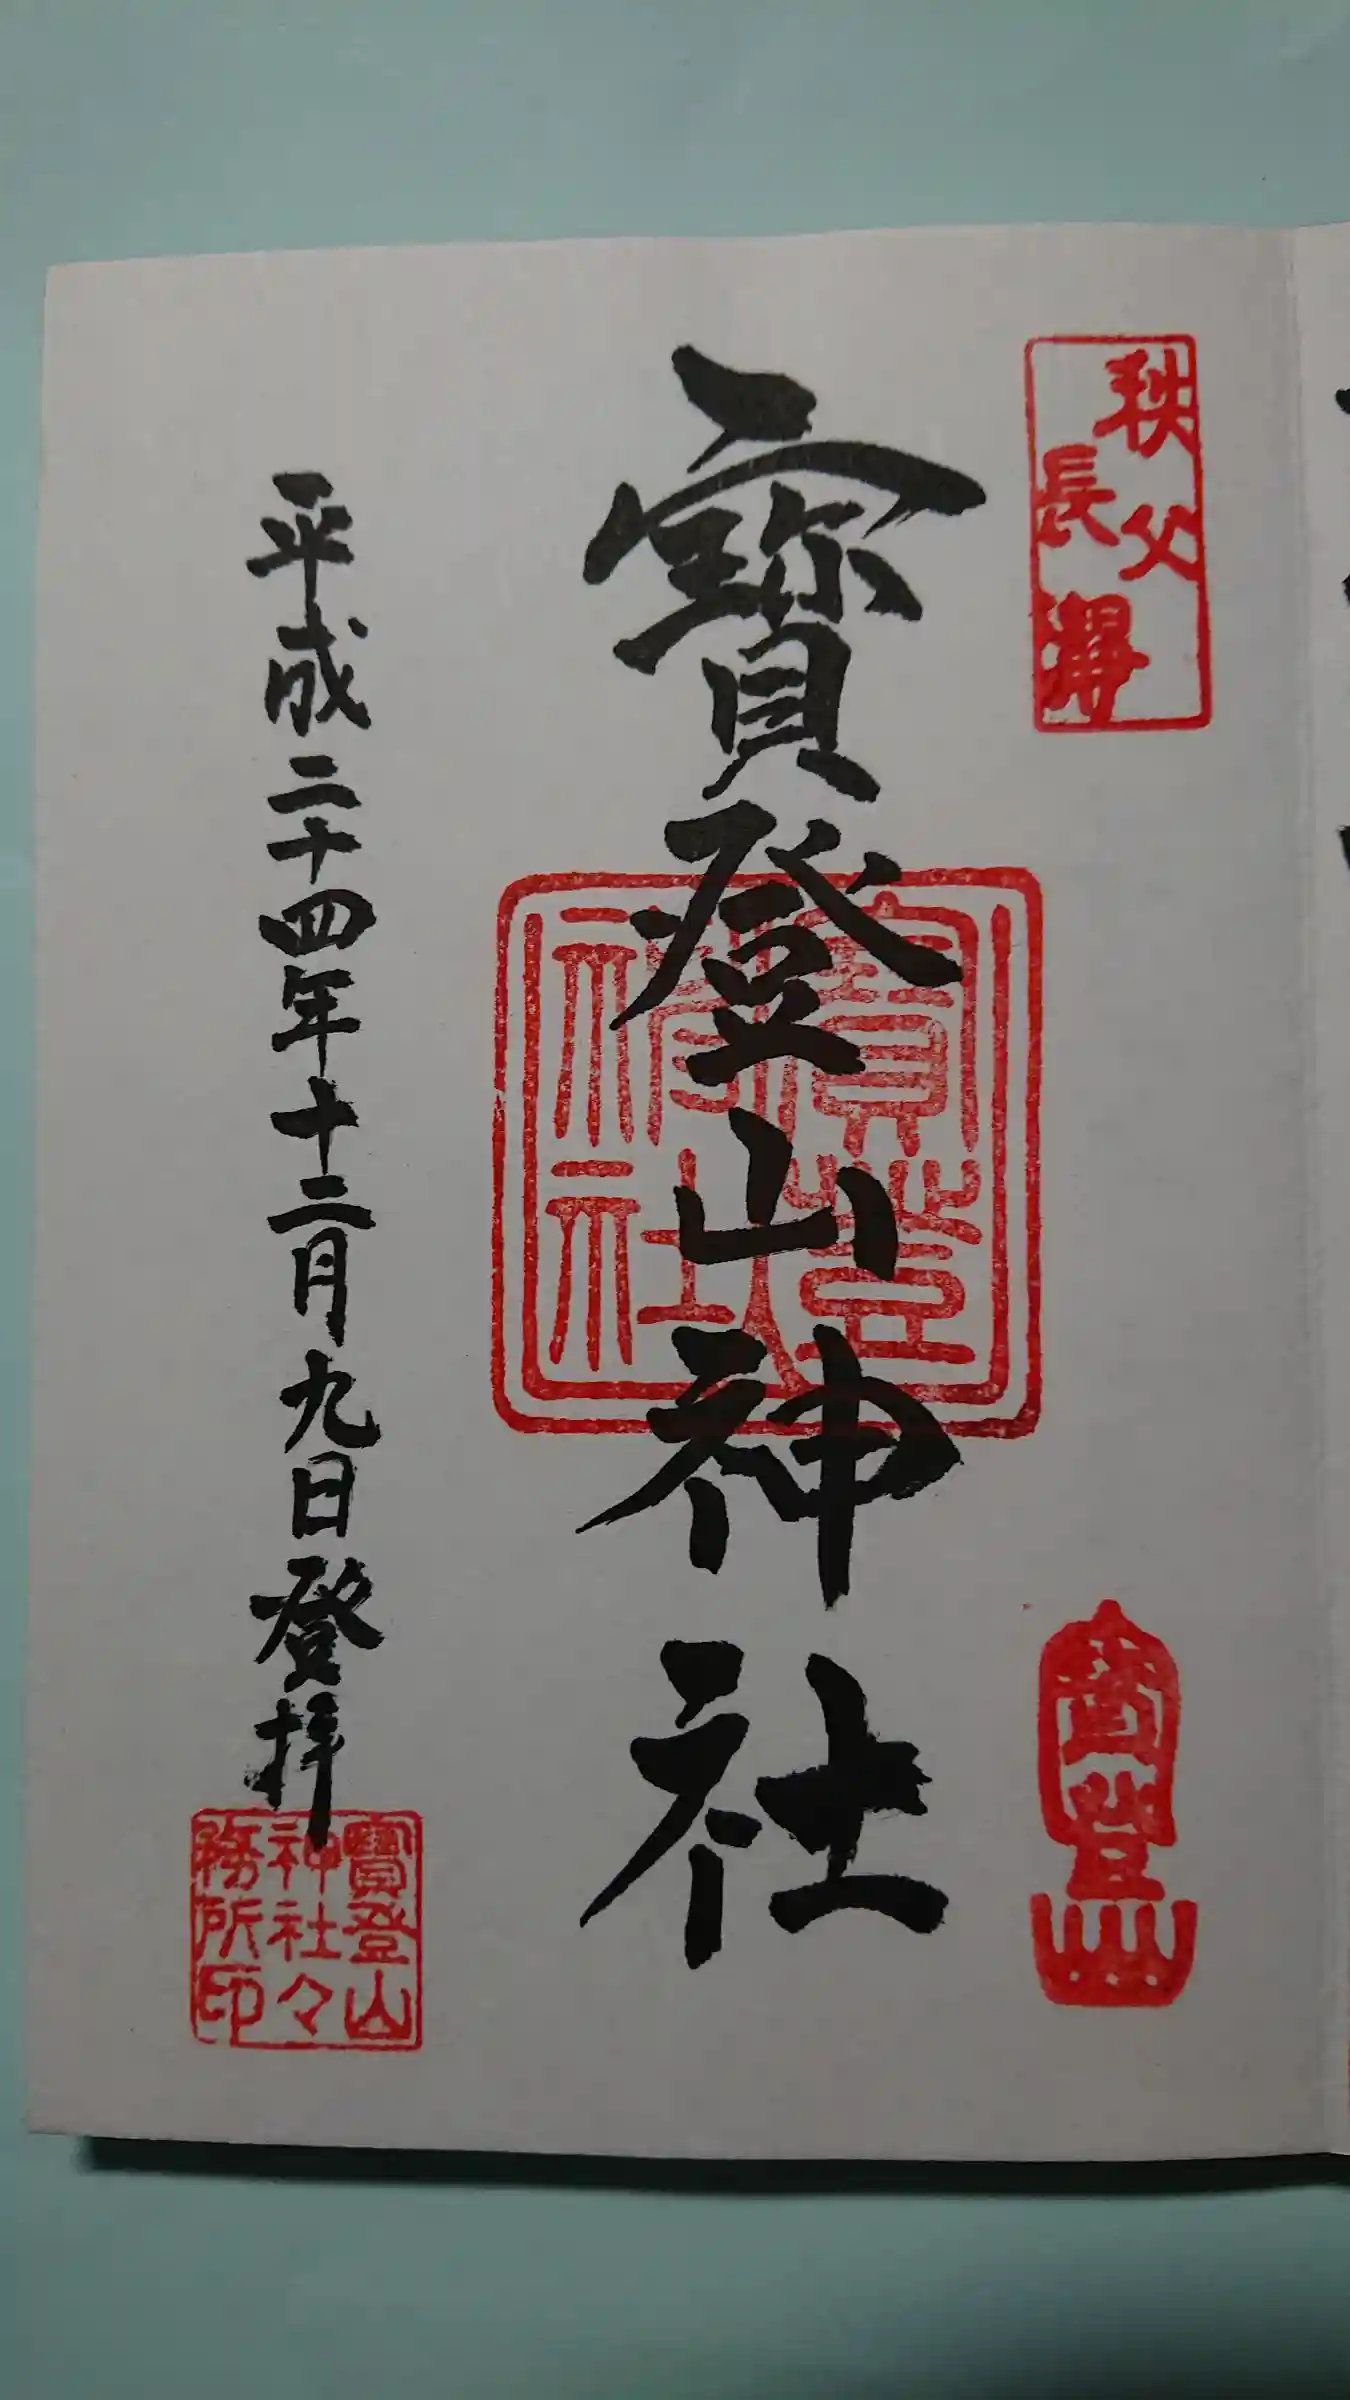 秩父
長瀞
寳登山
寳登山神社
寳登山神社
平成二十四年十二月九日登拝
寳登山
神社々
務所印